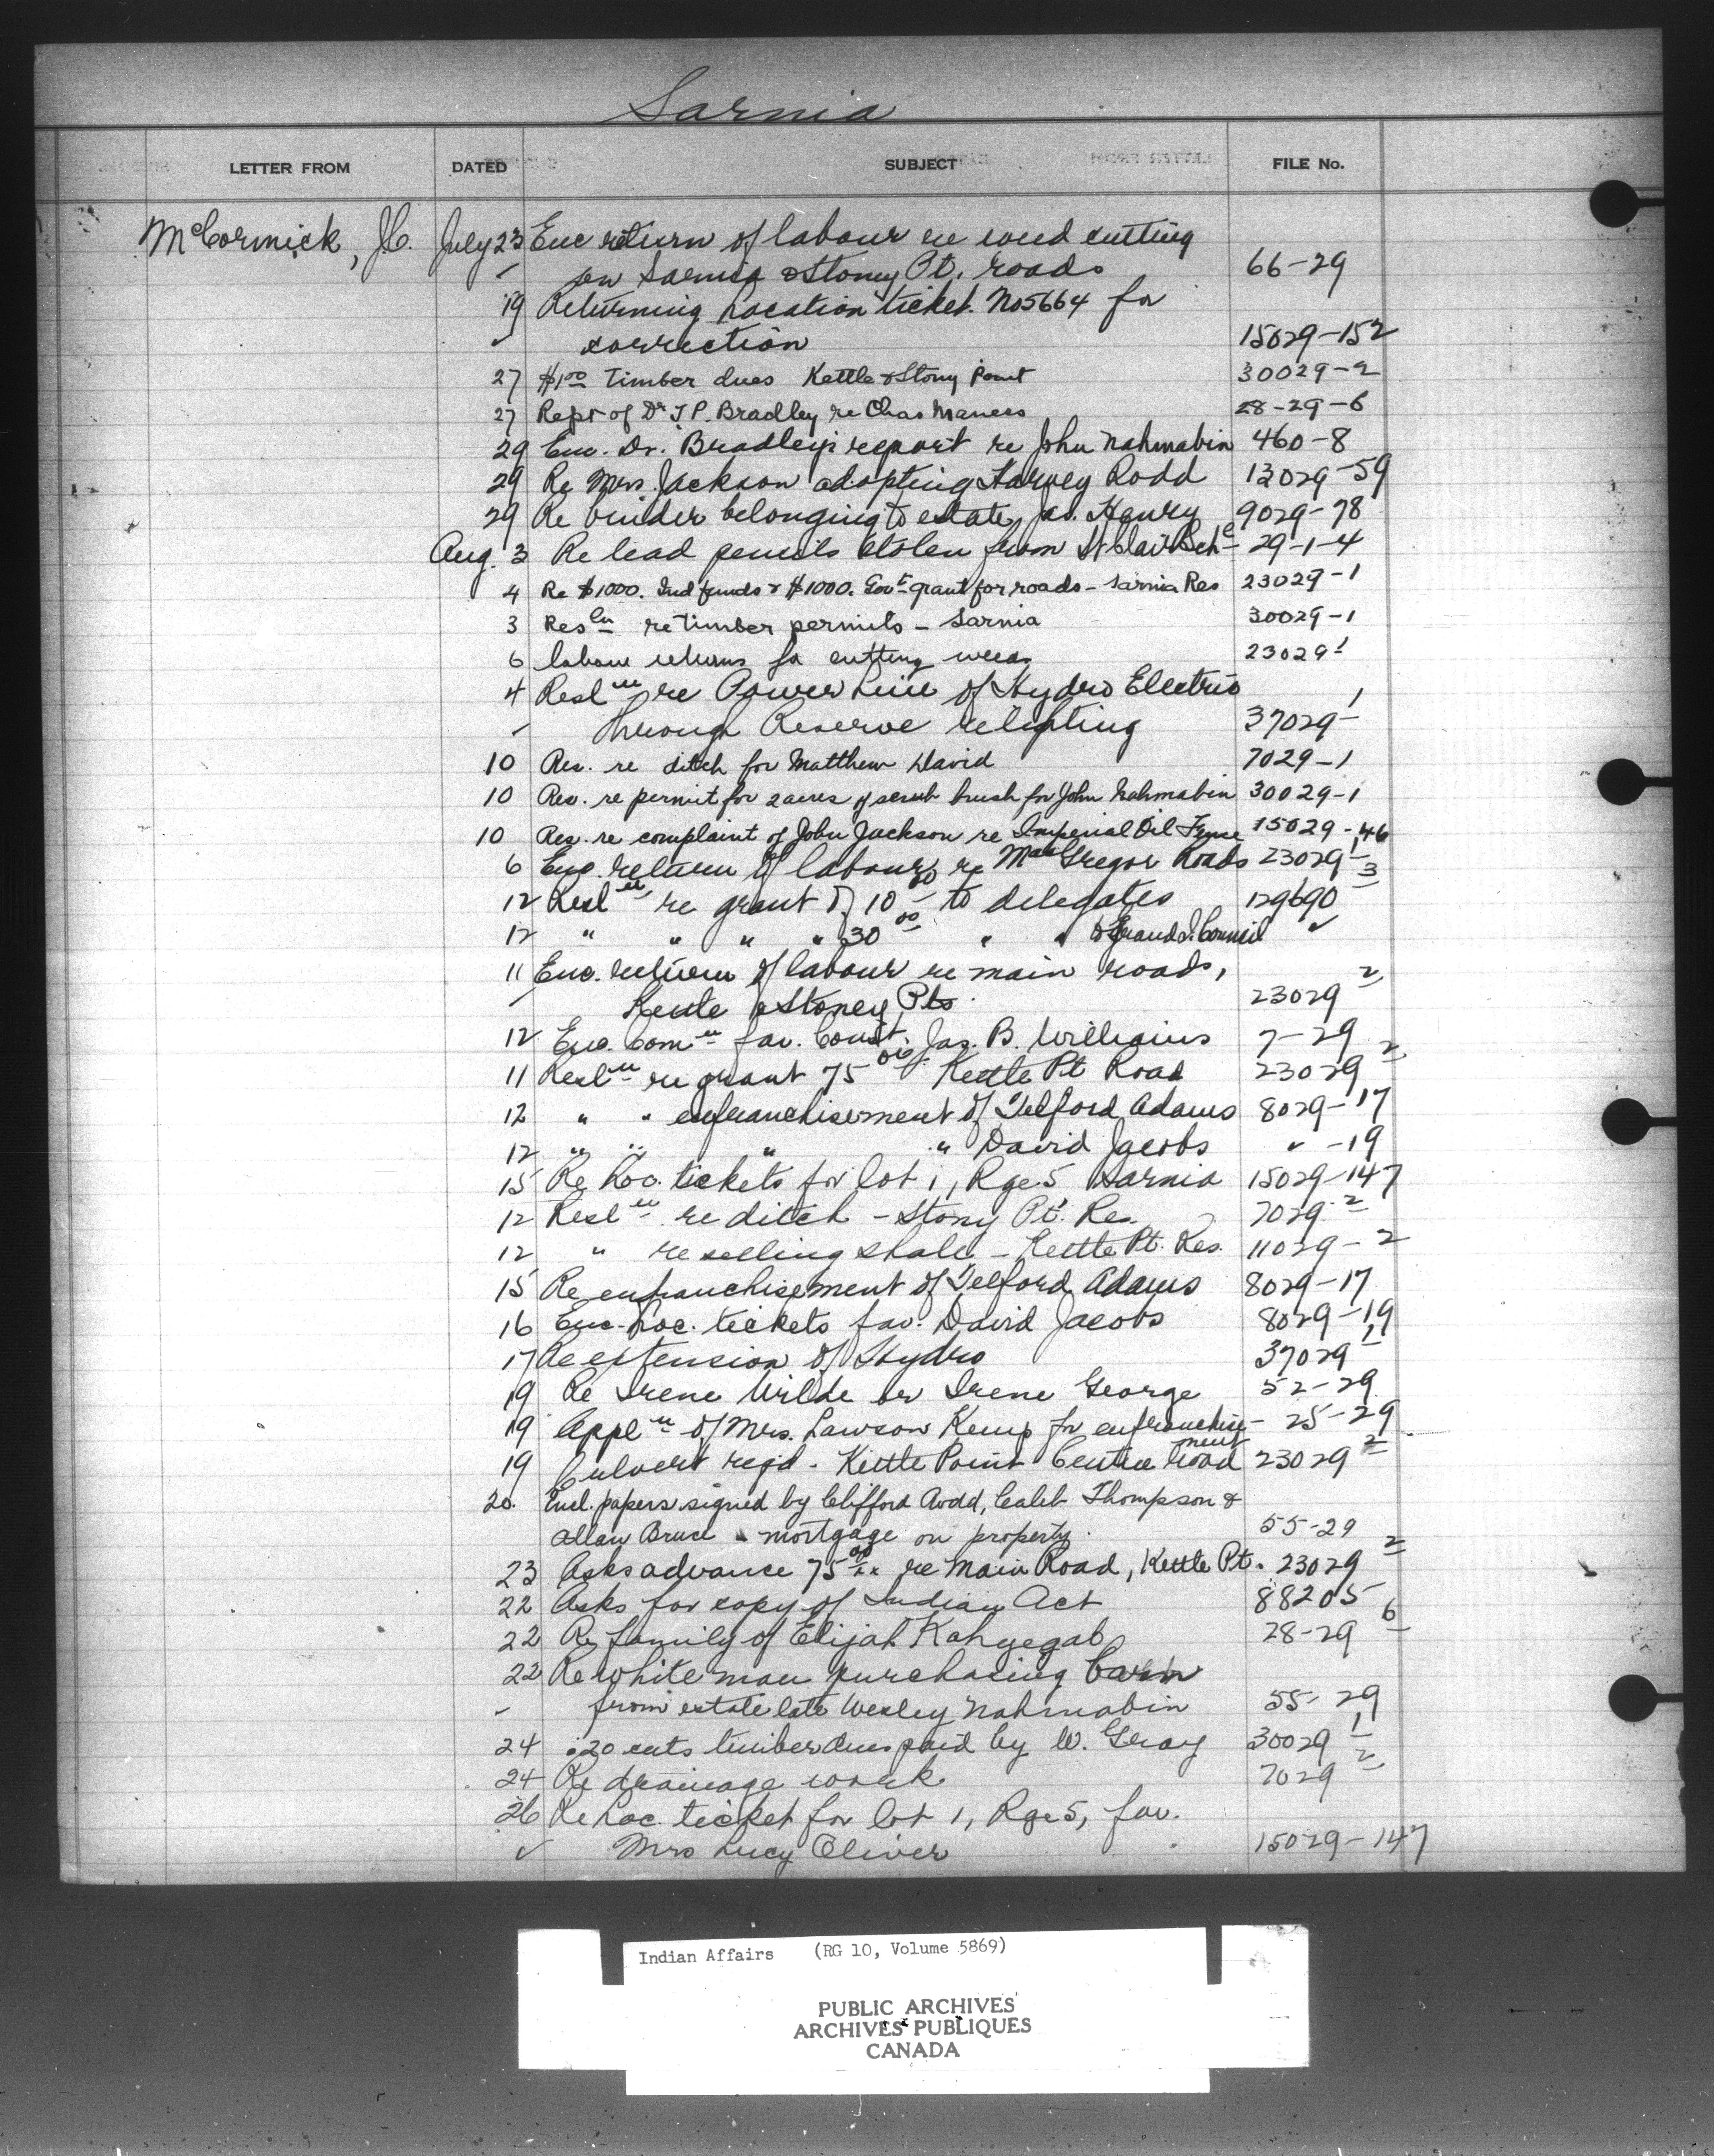 Sarnia
LETTER FROM DATED SUBJECT FILE No.
McCormick, J.C. July 23 Enc return of labour re weed cutting
on Sarnia & Stoney Pt. roads 66-29
19 Returning Location ticket No 5664 for
correction 15029-152
27 $1.00 Timber dues Kettle & Stony Point 30029-2
27 Rept of Dr. T.P. Bradley re Chas Maness 28-29-6
29 Enc. Dr. Bradley's report re John Nahmabin 460-8
29 Re Mrs. Jackson adopting Harvey Rodd 13029-59
29 Re binder belonging to estate, Jas. Henry 9029-78
Aug. 3 Re lead pencils stolen from St Clair Sch. 29-1-4
4 Re $1000. Ind funds & $1000. Govt grant for roads - Sarnia Res 23029-1
3 Resln re timber permits - Sarnia 30029-1
6 labour returns for cutting weeds 23029-1
4 Resln re Power Line of Hydro Electric
through Reserve relighting 37029-1
10 Res. re ditch for Matthew David 7029-1
10 Res. re permit for 2 acres of scrub brush for John Nahmabin 30029-1
10 Res. re complaint of John Jackson re Imperial Oil Fence 15029-46
6 Enc. return of labour re MacGregor Roads 23029-1
12 Resln re grant of 10.00 to delegates 129690-3
12 " " " " 30.00 " " Grand I. Council ✓
11 Enc. return of labour re main roads,
Kettle & Stoney Pts. 23029-2
12 Enc. Comn fav. Const. Jas. B. Williams 7-29
11 Resln re grant 75.00 Kettle Pt Road 23029-2
12 " " enfranchisement of Telford Adams 8029-17
12 " " " " David Jacobs " -19
15 Re Loc. tickets for lot 1, Rge 5 Sarnia 15029-147
12 Resln re ditch - Stony Pt. Res. 7029-2
12 " re selling shale - Kettle Pt. Res. 11029-2
15 Re enfranchisement of Telford Adams 8029-17
16 Enc. Loc. tickets fav. David Jacobs 8029-19
17 Re extension of Hydro 37029-1
19 Re Irene Wilde or Irene George 52-29
19 Appln of Mrs. Lawson Kemp for enfranchise- 25-29
ment
19 Culvert reqd. Kettle Point Centre road 23029-2
20. Encl. papers signed by Clifford Rodd, Caleb Thompson &
Allan Bruce mortgage on property. 55-29
23 Asks advance 75.00 re Main Road, Kettle Pt. 23029-2
22 Asks for copy of Indian Act 88205
22 Re family of Elijah Kahgegab 28-29-6
22 Re white man purchasing barn
from estate late Wesley Nahmabin 55-29
24 .20 cents timber dues paid by W. Gray 30029-1
24 Re drainage work 7029-2
26 Re Loc. ticket for lot 1, Rge 5, fav.
Mrs Lucy Oliver 15029-147
Indian Affairs (RG 10, Volume 5869)
PUBLIC ARCHIVES
ARCHIVES PUBLIQUES
CANADA